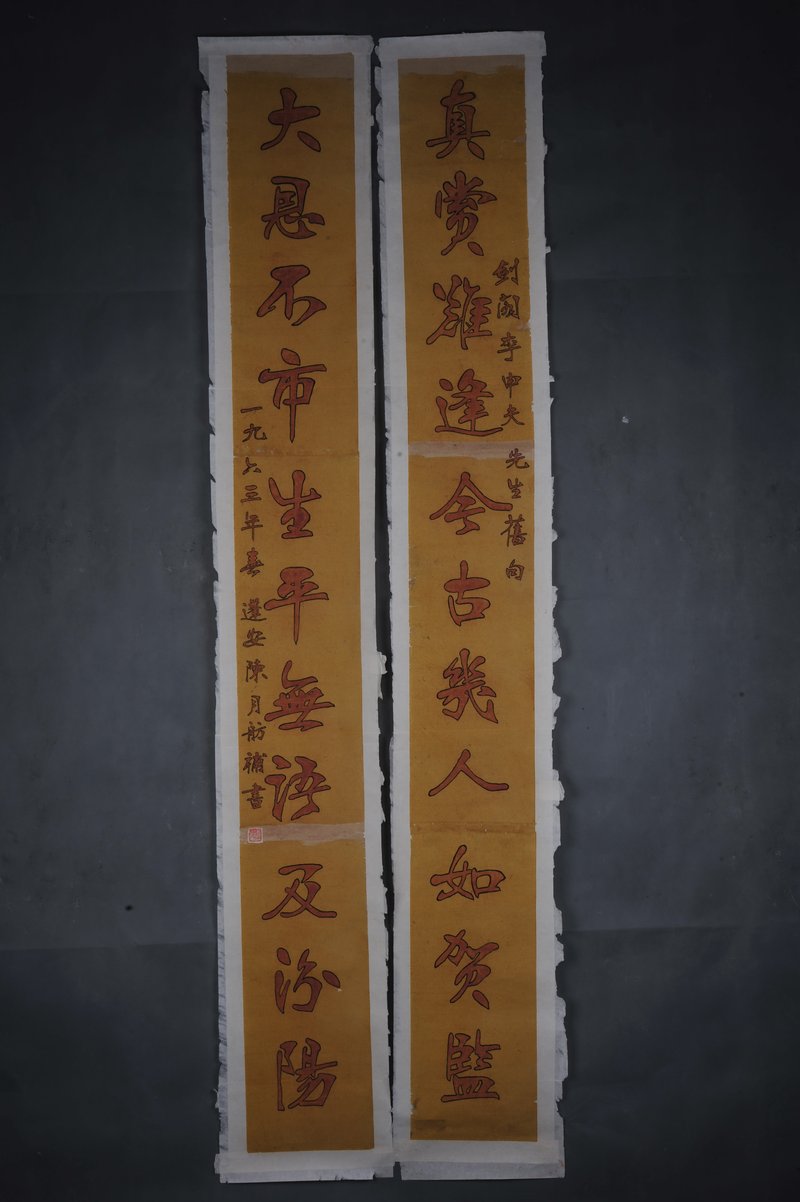 真赏難逢今古幾人如贺監
劍閣李申夫先生舊句
大恩不市生平無語及汾陽
一九六三年春蓬安陳月舫補書